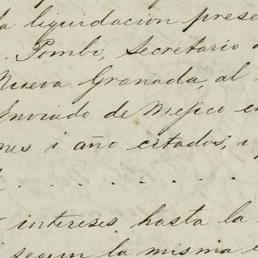 la liquidacion prese
Pombo, Secretario
Nueva Granada, al
Enviado de Mejico en
nes i año citados, i
. . . . . .
intereses hasta la
segun la misma